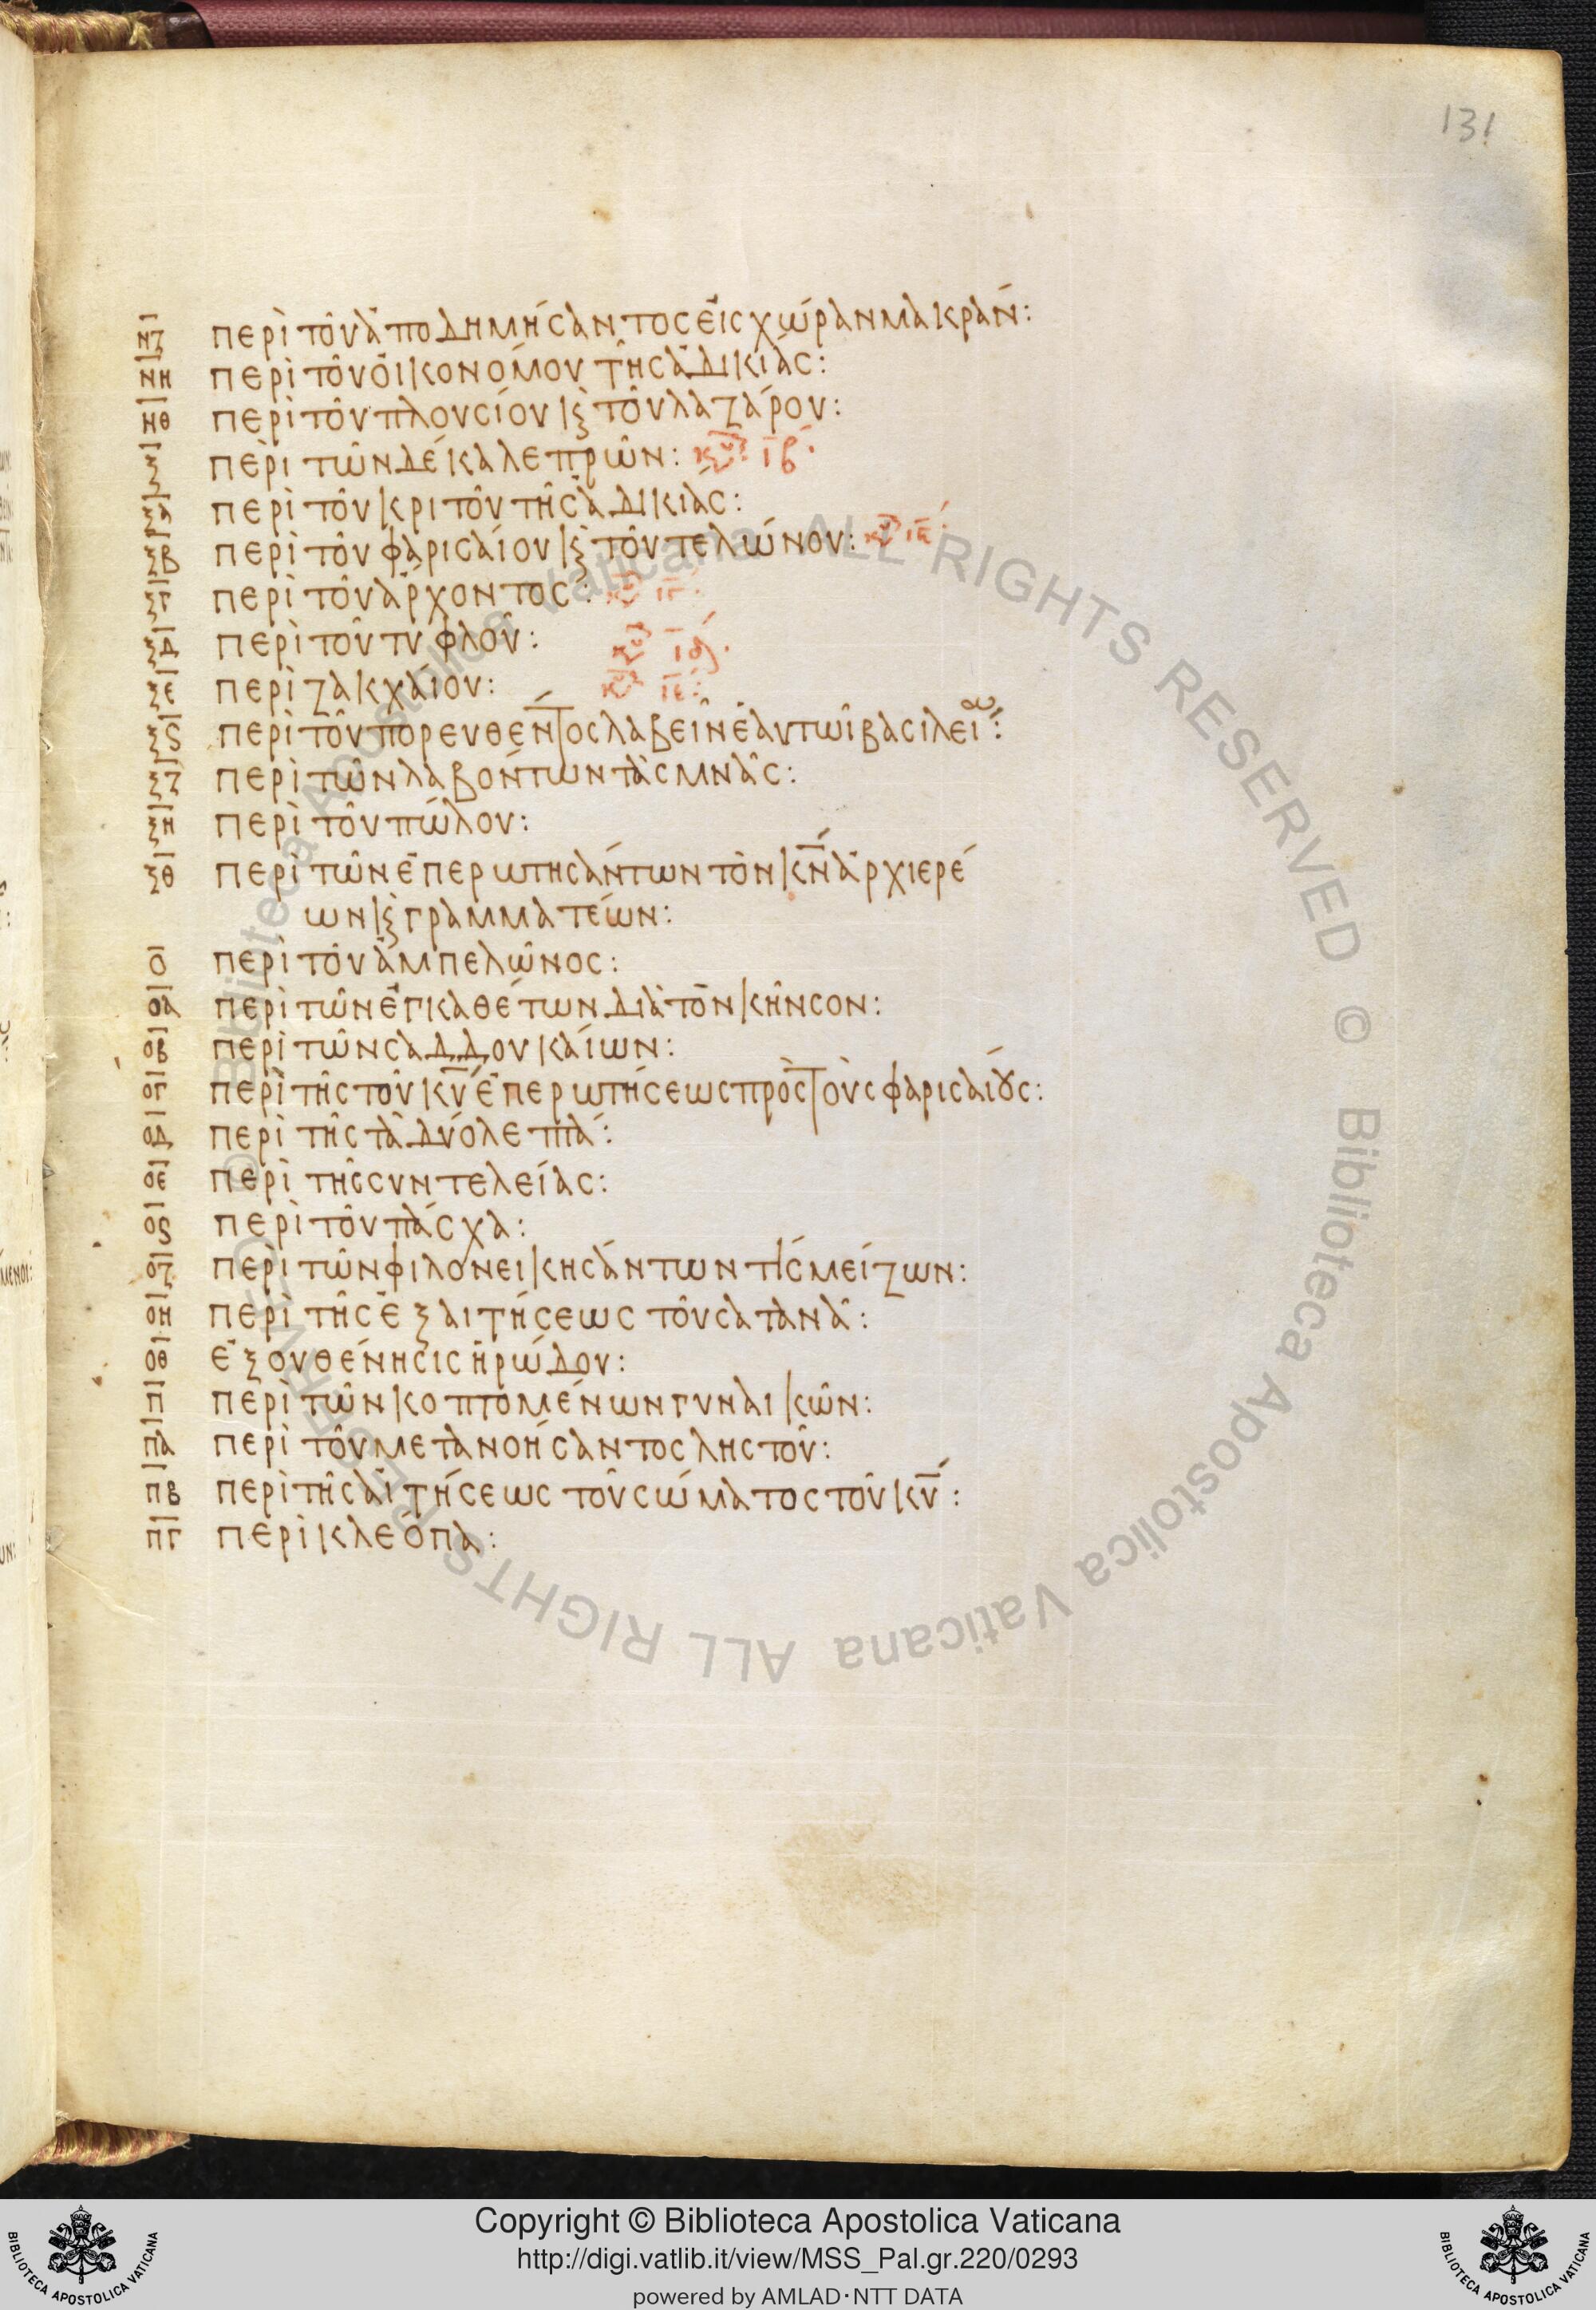 131
ν̅ζ̅ περὶ τοῦ ἀποδημήσαντος εἰς χώραν μακράν:
ν̅η̅ περὶ τοῦ οἰκονόμου τῆς ἀδικίας:
ν̅θ̅ περὶ τοῦ πλουσίου κ̀ τοῦ λαζάρου:
ξ̅ περὶ τῶν δέκα λεπρῶν: κυ ιβ
ξ̅α̅ περὶ τοῦ κριτοῦ τῆς ἀδικίας:
ξ̅β̅ περὶ τοῦ φαρισαίου κ̀ τοῦ τελώνου:
ξ̅γ̅ περὶ τοῦ ἄρχοντος:
ξ̅δ̅ περὶ τοῦ τυφλοῦ: κυ ιδ
ξ̅ε̅ περὶ ζακχαίου: κυ ιε
ξ̅ϛ̅ περὶ τοῦ πορευθέντος λαβεῖν ἑαυτῶι βασιλεί:
ξ̅ζ̅ περὶ τῶν λαβόντων τὰς μνᾶς:
ξ̅η̅ περὶ τοῦ πώλου:
ξ̅θ̅ περὶ τῶν ἐπερωτησάντων τὸν κ̅ν̅ ἀρχιερέ
ων κ̀ γραμματέων:
ο̅ περὶ τοῦ ἀμπελῶνος:
ο̅α̅ περὶ τῶν ἐγκαθέτων διὰ τὸν κῆνσον:
ο̅β̅ περὶ τῶν σαδδουκαίων:
ο̅γ̅ περὶ τῆς τοῦ κ̅υ̅ ἐπερωτήσεως πρὸς τοὺς φαρισαίους:
ο̅δ̅ περὶ τῆς τὰ δύο λεπτά:
ο̅ε̅ περὶ τῆς συντελείας:
ο̅ϛ̅ περὶ τοῦ πάσχα:
ο̅ζ̅ περὶ τῶν φιλονεικησάντων τίς μείζων:
ο̅η̅ περὶ τῆς ἐξαιτήσεως τοῦ σατανᾶ:
ο̅θ̅ ἐξουθένησις ἡρώδου:
π̅ περὶ τῶν κοπτομένων γυναικῶν:
π̅α̅ περὶ τοῦ μετανοήσαντος ληστοῦ:
π̅β̅ περὶ τῆς αἰτήσεως τοῦ σώματος τοῦ κ̅υ̅:
π̅γ̅ περὶ κλεόπα:
© Biblioteca Apostolica Vaticana ALL RIGHTS RESERVED © Biblioteca Apostolica Vaticana ALL RIGHTS RESERVED
Copyright © Biblioteca Apostolica Vaticana
http://digi.vatlib.it/view/MSS_Pal.gr.220/0293
powered by AMLAD·NTT DATA
BIBLIOTECA APOSTOLICA VATICANA
BIBLIOTECA APOSTOLICA VATICANA